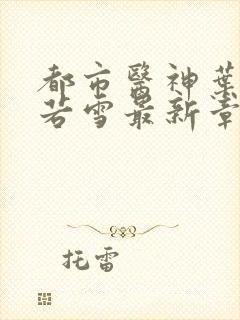 都市醫神葉
若雪最新章
托雷